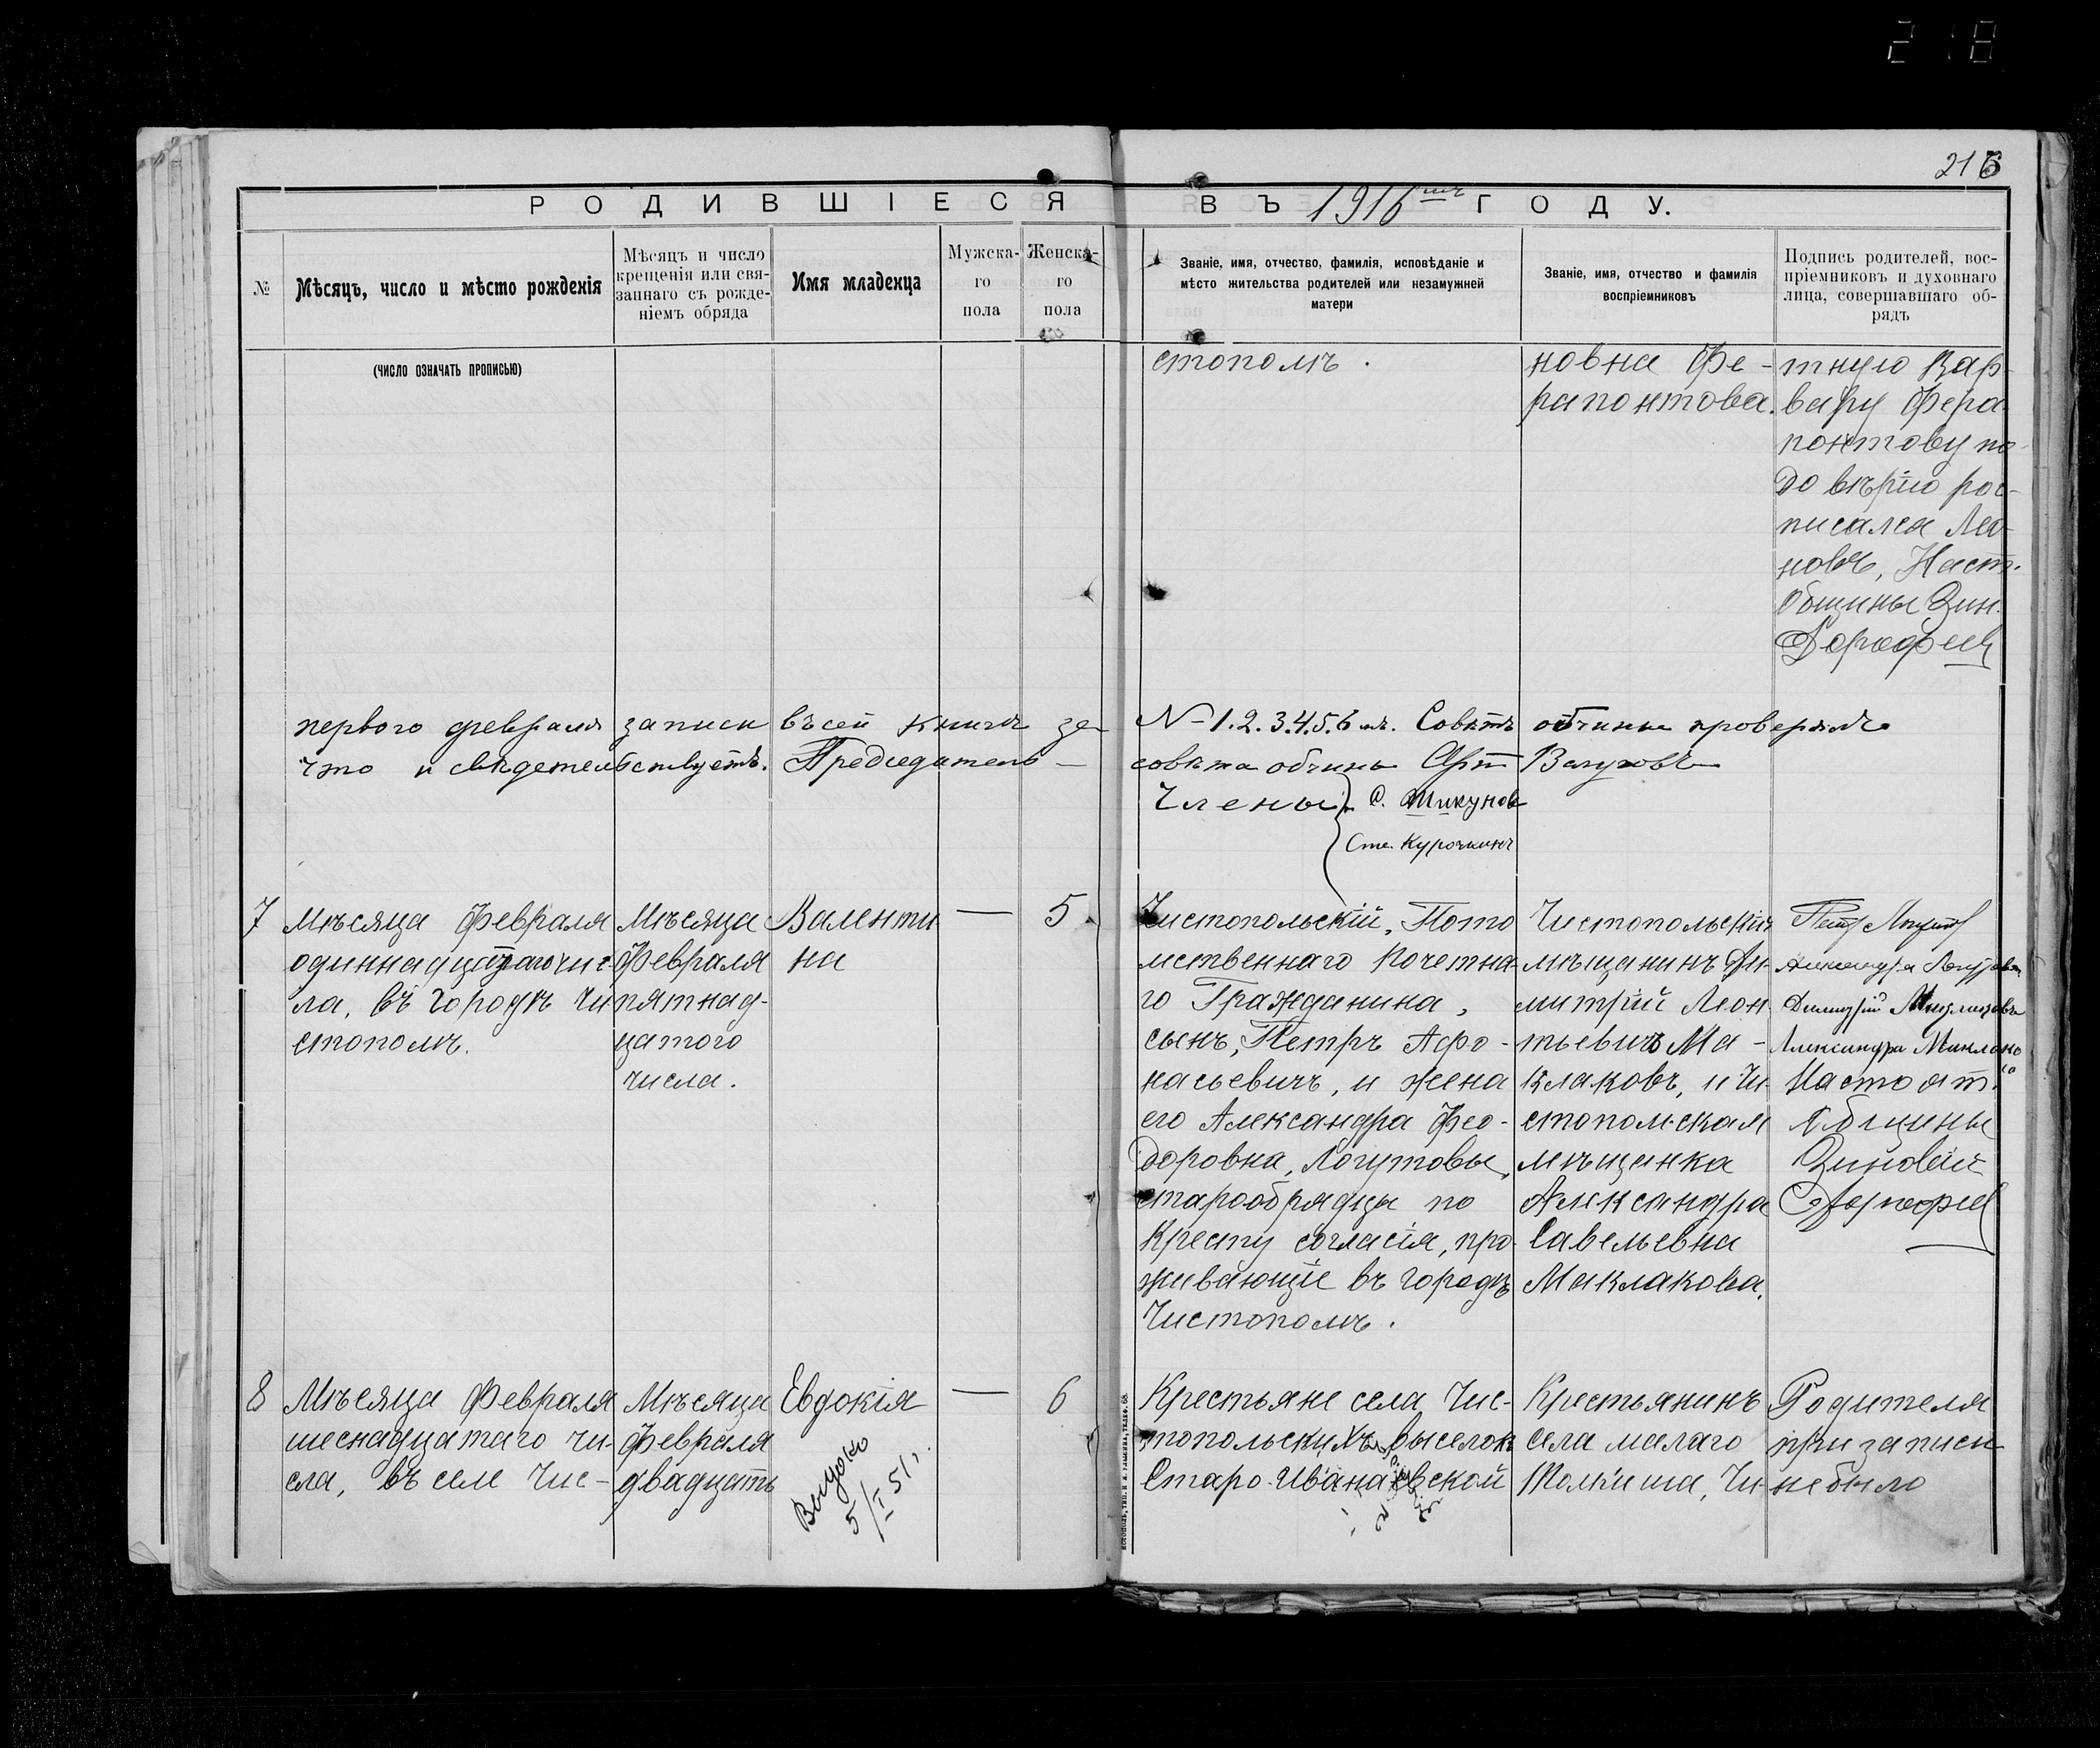 218
216
РОДИВШІЕСЯ
ВЪ 1916 ГОДУ.
№
Мѣсяцъ, число и мѣсто рожденія
(ЧИСЛО ОЗНАЧАТЬ ПРОПИСЬЮ)
Мѣсяцъ и число
крещенія или свя-
заннаго съ рожде-
ніемъ обряда
Имя младенца
Мужска-
го
пола
Женска-
го
пола
Званіе, имя, отчество, фамилія, исповѣданіе и
мѣсто жительства родителей или незамужней
матери
Званіе, имя, отчество и фамилія
воспріемниковъ
Подпись родителей, вос-
пріемниковъ и духовнаго
лица, совершавшаго об-
рядъ
стополѣ.
новна Фе-
рапонтова.
тную Вар-
вару Фера-
понтову по
довѣрію рос-
писался
Наст.
общины Зин.
Дорофеев
первого февраля записи въ сей книгѣ за
N-1.2.3.4.5.6 Совѣтъ общины проверялъ
что и свидетельствуетъ. Председатель
совѣта общины Валуховъ
Члены
С. Шикунов
Сте. Курочкинъ
7
Мѣсяца Февраля
одиннадцатаго чис-
ла, въ городѣ Чи-
стополѣ.
Мѣсяца
Февраля
пятнад-
цатого
числа.
Валенти
на
—
5
Чистопольскій, Пото
мственнаго Почетна-
го Гражданина,
сынъ, Петръ Афо-
насьевичъ, и жена
его Александра Фео-
доровна, Логутовы,
старообрядцы по
Кресту согласія, про-
живающіе въ городѣ
Чистополѣ.
Чистопольскій
мѣщанинъ Ди-
митрій Леон-
тьевичъ Ма-
клаковъ, и Чи-
стопольская
мѣщанка
Александра
Савельевна
Маклакова.
Петр Логутов
Александра Логутова
Димитрій Маклаковъ
Александра Маклако
Настоят.
Общины
Зиновій
Дорофеев
8
Мѣсяца Февраля
шеснадцатаго чи-
сла, въ селе Чис-
Мѣсяца
Февраля
двадцать
Евдокія
5/I 51 г.
—
6
Крестьяне села Чис-
топольскихъ выселокъ
Старо-Ивановской
Крестьянинъ
села малаго
Толкиша, Чи-
Родителя
при записи
не было